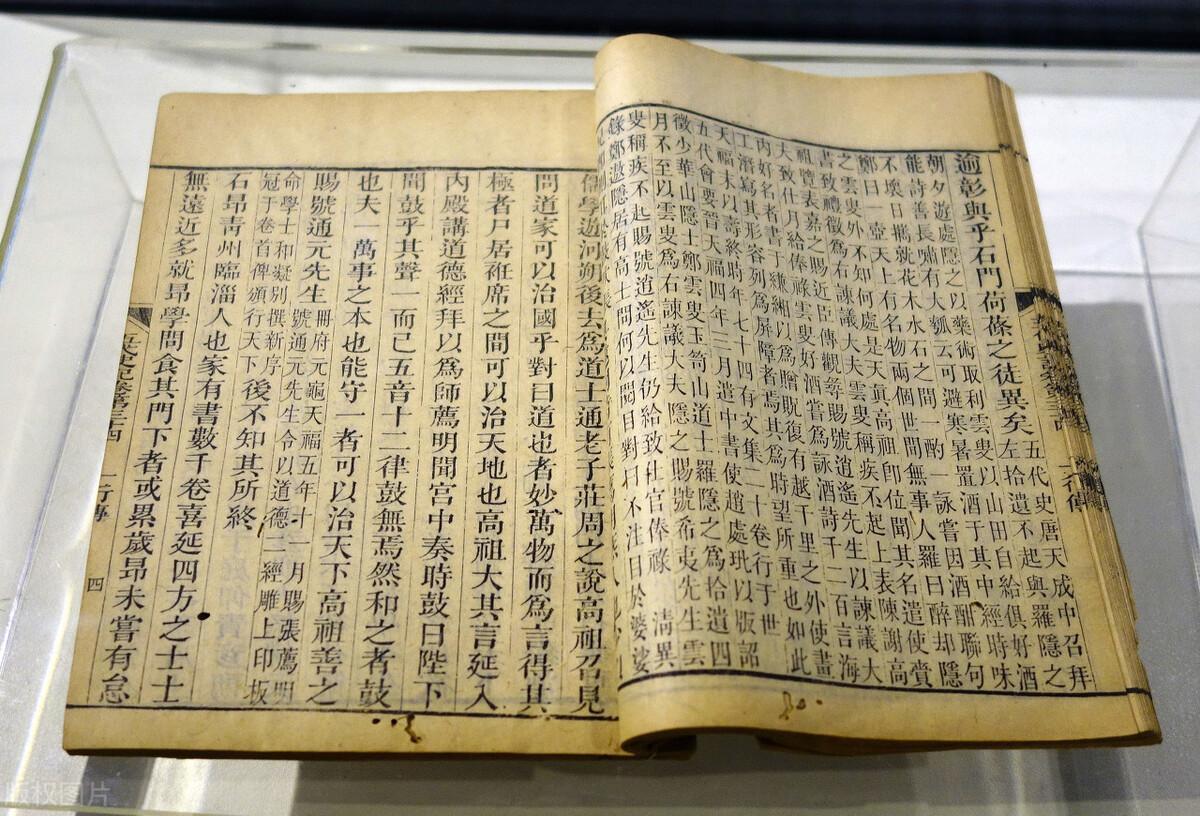 逾彰與乎石門荷蓧之徒異矣
五代史唐天成中召拜
左拾遺不起與羅隱之
朝夕遊處隱之以藥術取利雲叟以山田自給俱好酒
能詩善長嘯有大瓢云可避寒暑置酒于其中經時味
不壞日攜就花木水石之間一酌一詠嘗因酒酣聯句
鄭曰一壺天上有名物兩個世間無事人羅曰醉却隱
之雲叟外不知何處是天真高祖卽位聞其名遣使賫
書致禮徵爲右諫議大夫雲叟稱疾不起上表陳謝高
祖覽表嘉之賜近臣傳觀尋賜號逍遙先生以諫議大
夫致仕月給俸祿雲叟好酒嘗爲詠酒詩千二百言海
內好名者書于縑緗以爲贈貺復有越千里之外使畫
工潛寫其形容列爲屏障者焉其爲時望所重也如此
天福末以壽終時年七十四有文集二十卷行于世
五代會要晉天福四年二月遣中書使趙處玭以版詔
徵少華山隱士鄭雲叟玉笥山道士羅隱之爲拾遺四
月不至以雲叟爲右諫議大夫隱之賜號希夷先生雲
叟稱疾不起賜號逍遙先生仍給致仕官俸祿 清異
錄鄭遨隱居有高士問何以閱目對曰不注目於婆娑
儒學遊河朔後去爲道士通老子莊周之說高祖召見
問道家可以治國乎對曰道也者妙萬物而爲言得其
極者尸居袵席之間可以治天地也高祖大其言延入
內殿講道德經拜以爲師薦明聞宮中奏時鼓曰陛下
聞鼓乎其聲一而已五音十二律鼓無焉然和之者鼓
也夫一萬事之本也能守一者可以治天下高祖善之
賜號通元先生
冊府元龜天福五年十一月賜張薦明
號通元先生令以道德二經雕上印板
命學士和凝別撰新序
冠于卷首俾頒行天下
後不知其所終
石昂靑州臨淄人也家有書數千卷喜延四方之士士
無遠近多就昂學問食其門下者或累歲昂未嘗有怠
五代史記卷第三十四 一行傳 四
版权图片